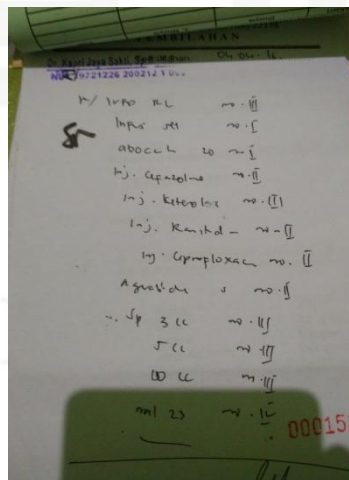 PEMBILAHAN
Dr. Kasri Jaya Sakti, SpB
04 04 - 16
19721226 200212 1
R/ Infus RL no. III
Infus set no. I
abocath 20 no I
Inj. Cefazoline no. II
Inj. Ketorolac no. III
Inj. Ranitid - no - II
Inj. Ciprofloxacin no. II
no. II
Sp 3 cc no. III
5 cc no III
10 cc no. III
no. IV
00015